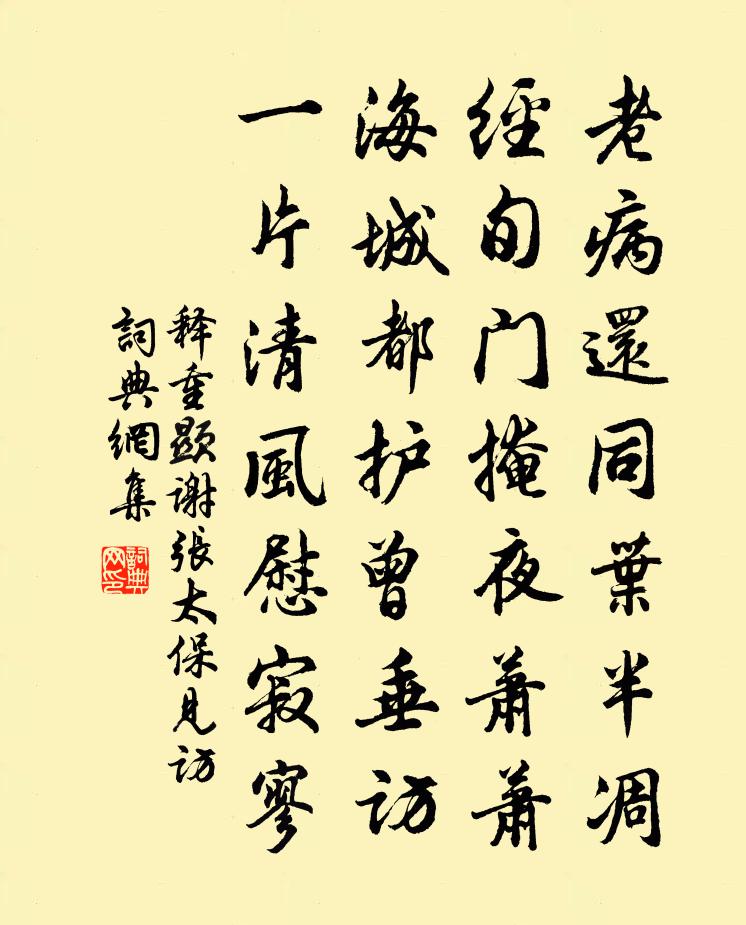 老病還同葉半凋
經旬門掩夜蕭蕭
海城都护曾垂访
一片清風慰寂寥
释重顯谢張太保見访
詞典網集
詞典网印